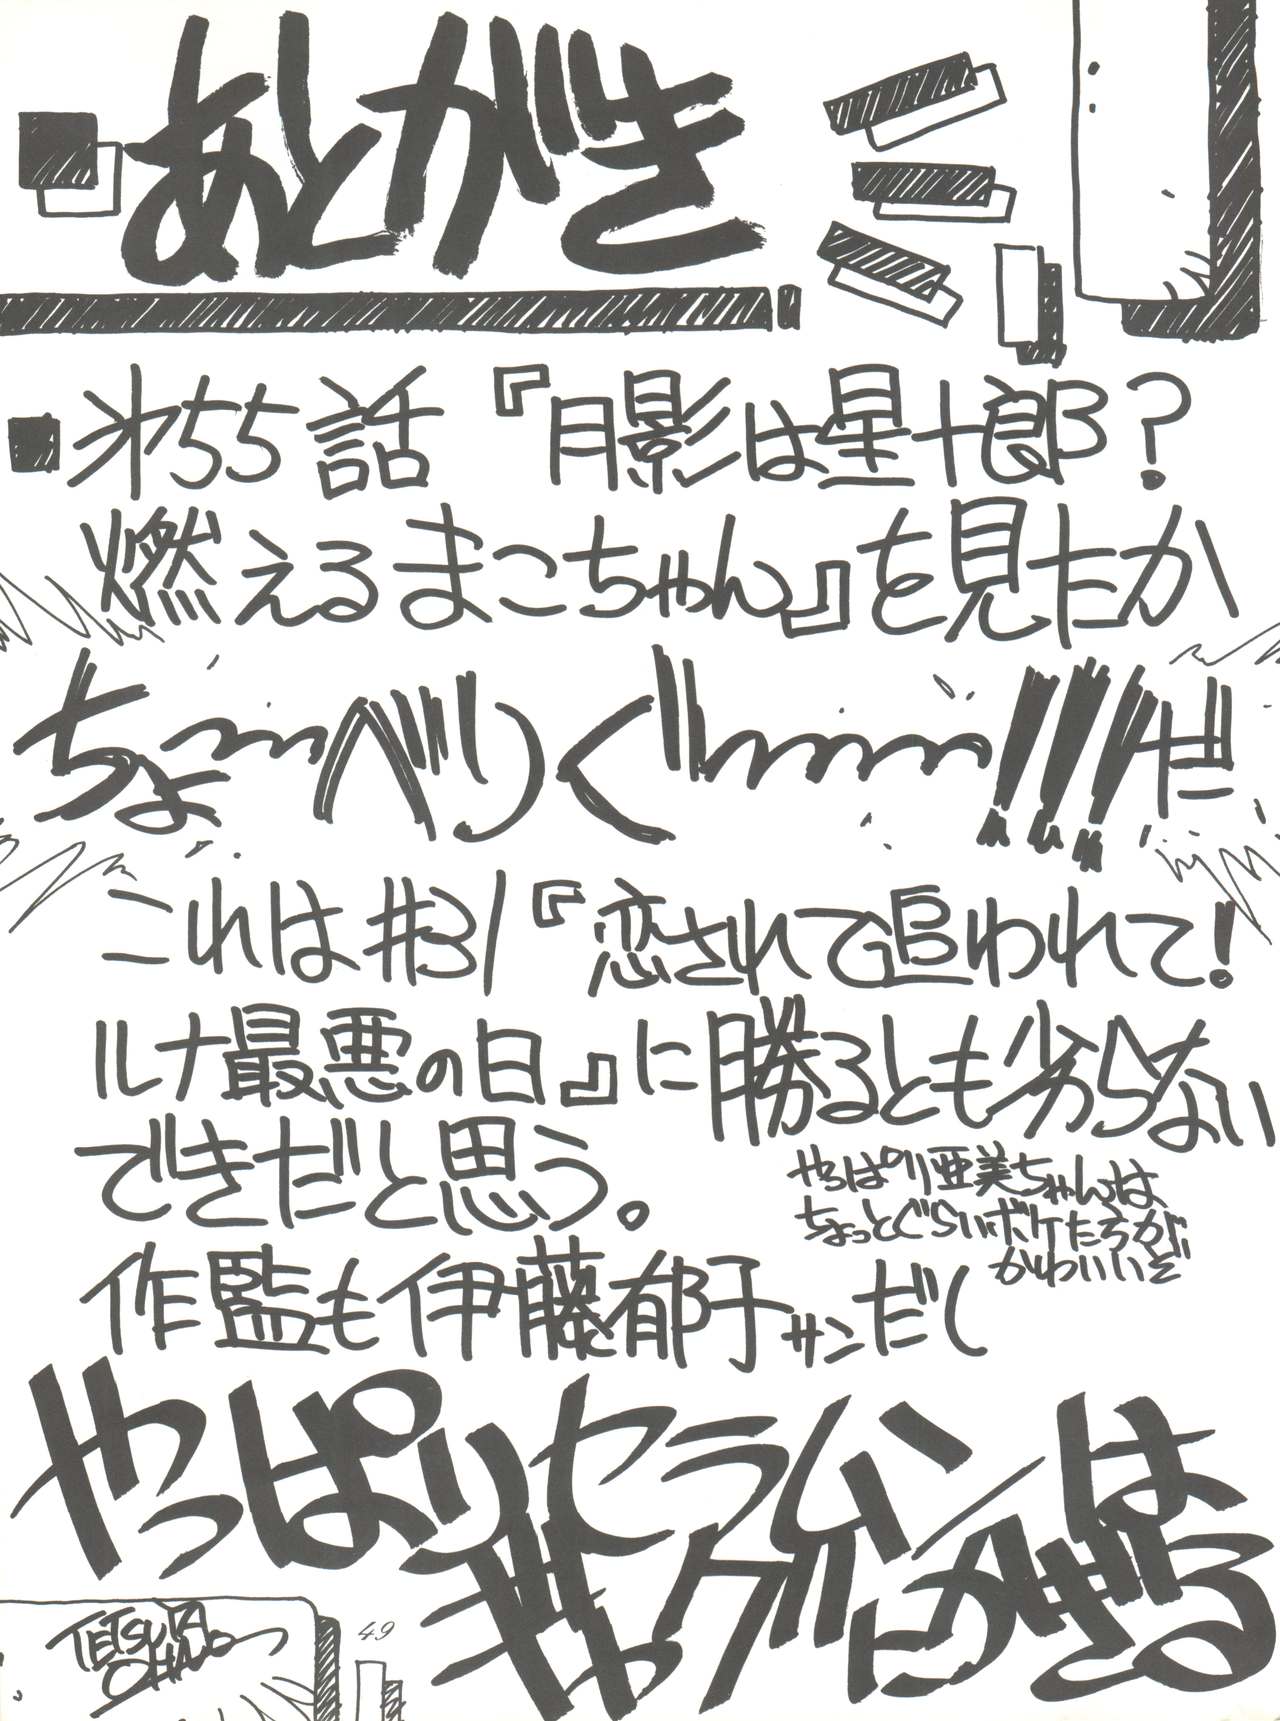 あとがき
■第55話『月影は星十郎?
燃えるまこちゃん』を見たか
ちょ〜べりぐ〜〜!!!だ
これは#31『恋されて追われて!
ルナ最悪の日』に勝るとも劣らない
できだと思う。
やっぱり亜美ちゃんは
ちょっとぐらいボケたほうが
かわいいぞ
作監も伊藤郁子サンだし
やっぱりセラムンは
ギャグにかぎる
TETSUYA
49